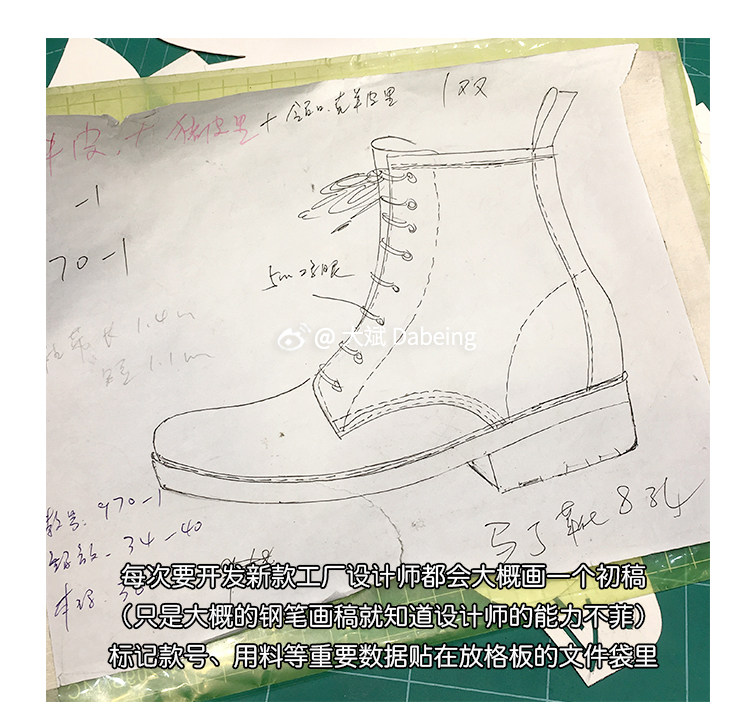 牛皮. 千 猪皮里 + 全配. 羌羊皮里 1双
-1
70-1
5mm
1.4m
1.1m
@大斌 Dabeing
款号. 970-1
34-40
马丁靴 834
每次要开发新款工厂设计师都会大概画一个初稿
（只是大概的钢笔画稿就知道设计师的能力不菲）
标记款号、用料等重要数据贴在放格板的文件袋里